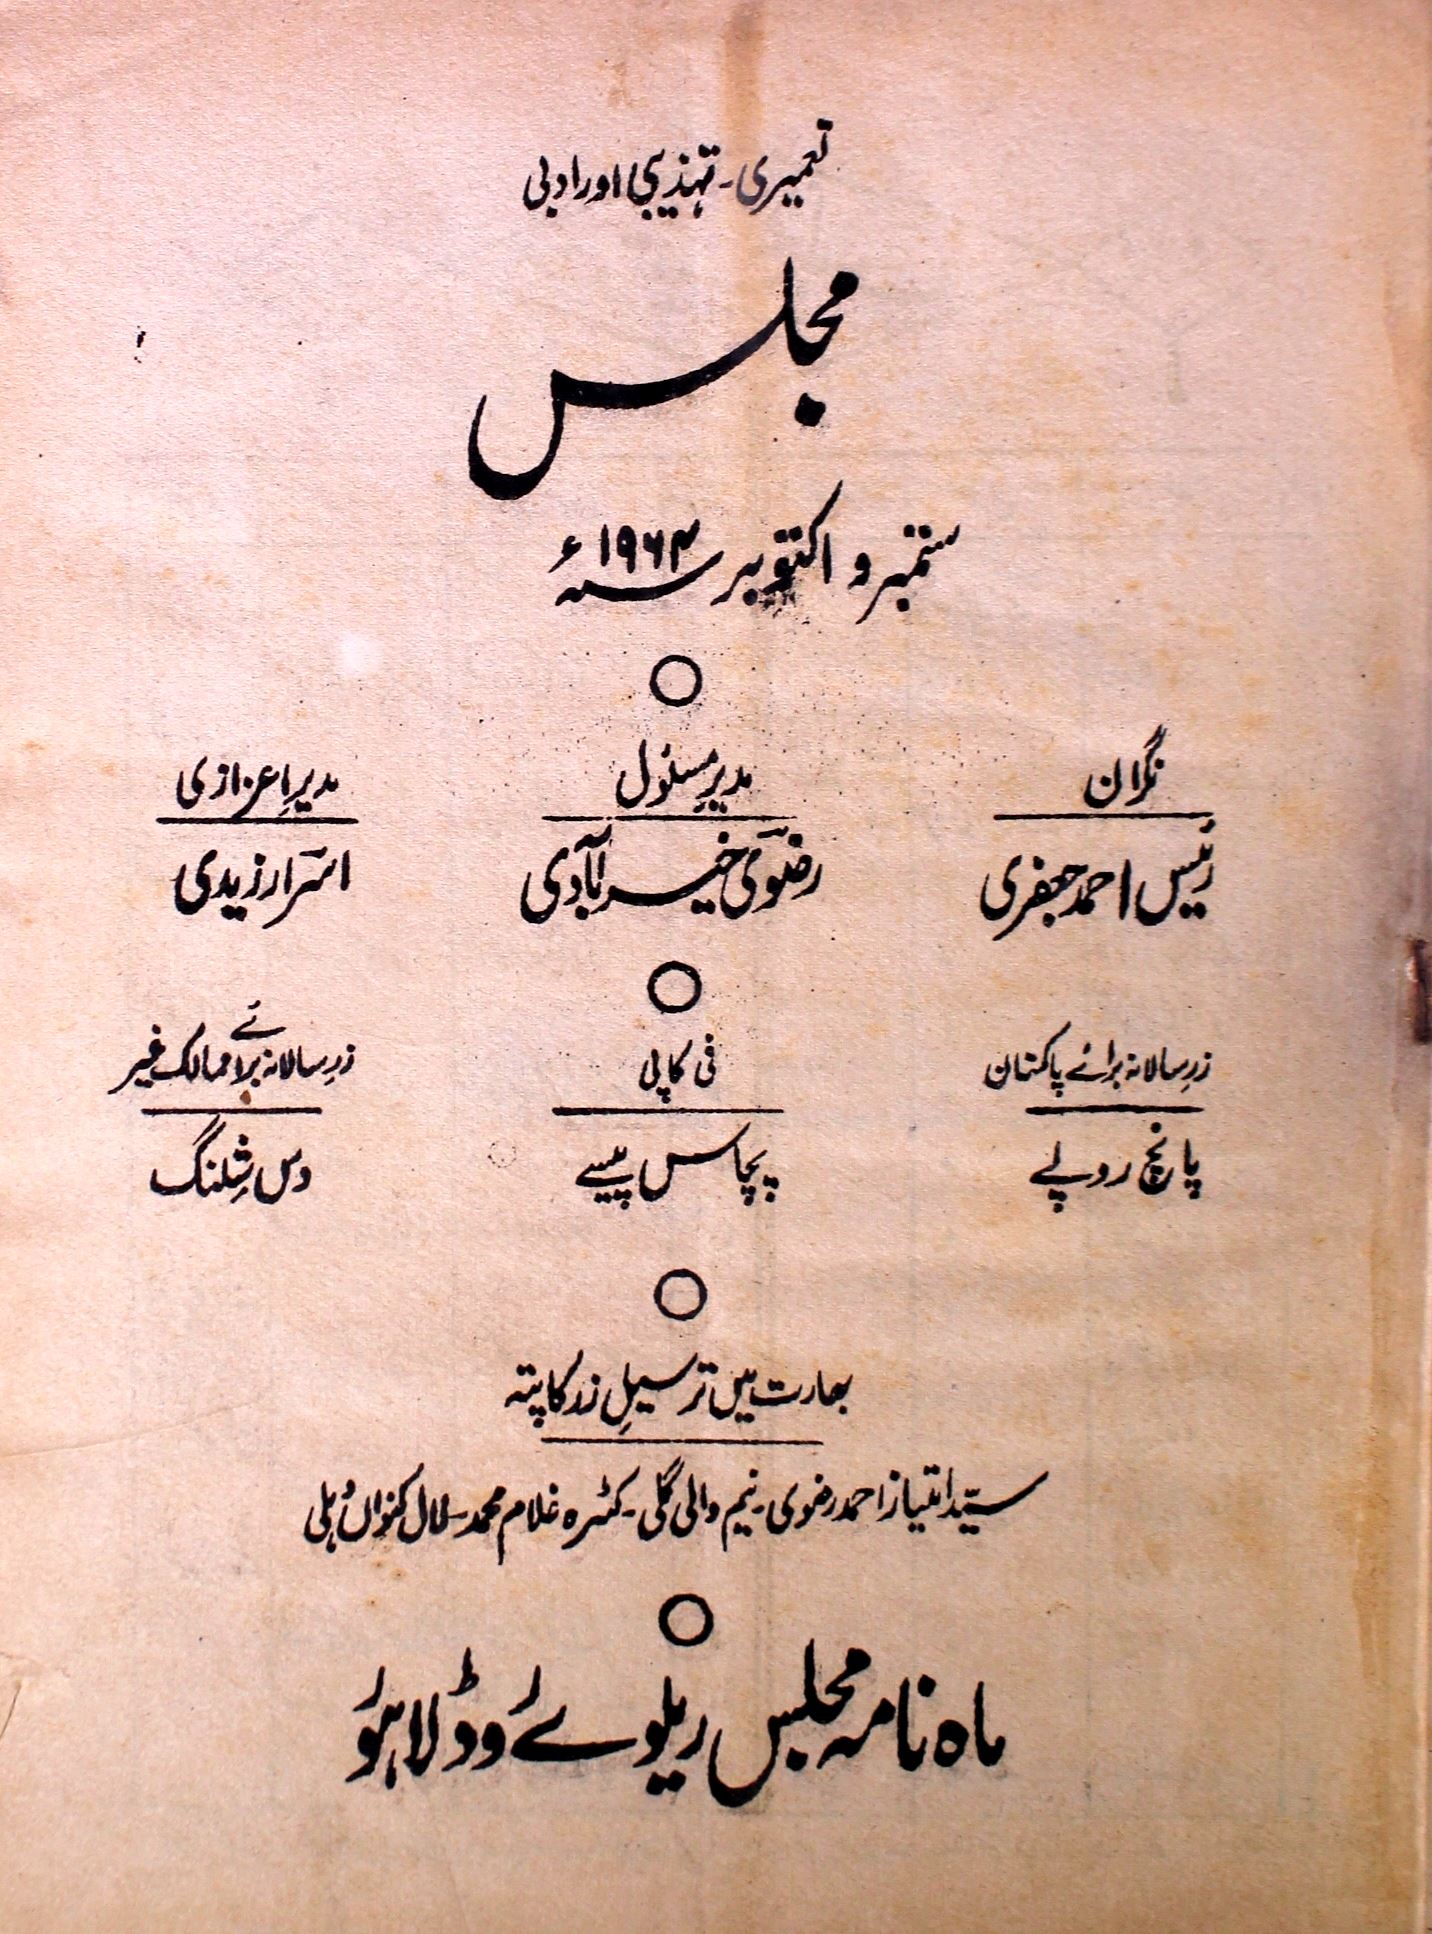 تعمیری۔ تہذیبی اور ادبی
مجلس
ستمبر و اکتوبر سنہ ۱۹۶۴ء
نگران
مدیرِ مسئول
مدیرِ اعزازی
رئیس احمد جعفری
رضوی خیرآبادی
اسرار زیدی
زرِ سالانہ برائے پاکستان
فی کاپی
زرِ سالانہ برائے ممالک غیر
پانچ روپے
پچاس پیسے
دس شلنگ
بھارت میں ترسیلِ زر کا پتہ
سیّد امتیاز احمد رضوی۔ نیم والی گلی۔ کٹرہ غلام محمد۔ لال کنواں دہلی
ماہ نامہ مجلس ریلوے روڈ لاہور